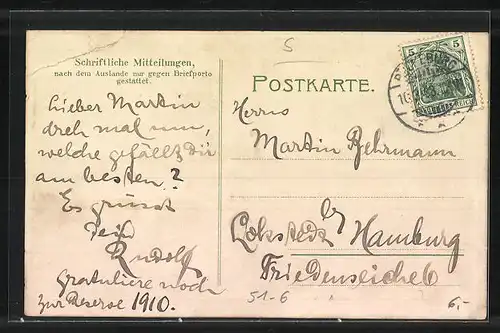 Schriftliche Mitteilungen,
nach dem Auslande nur gegen Briefporto
gestattet.
Lieber Martin
dreh mal um,
welche gefällt Dir
am besten?
Es grüsst
Dein
Rudolf
Gratuliere noch
zur Reserve 1910.
5
POSTKARTE.
Herrn
Martin Behrmann
Lokstedt by Hamburg
Friedenseiche 6
51-6
6,-
5 5